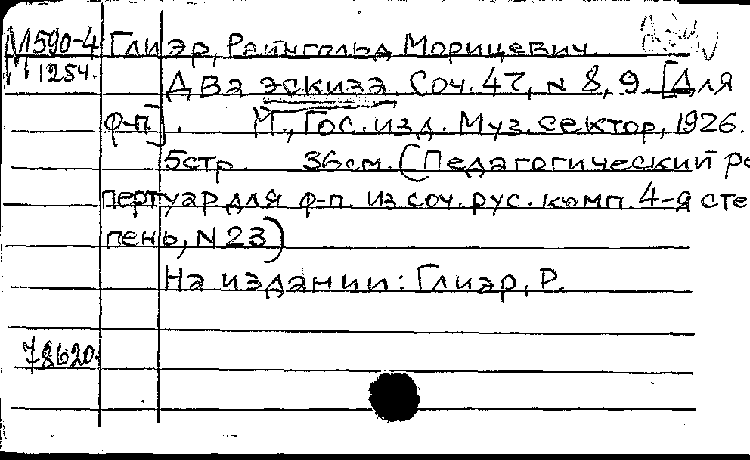 М590-4 Глиэр, Рейнгольд Морицевич.
М 1254. Два эскиза. Соч. 47, № 8, 9. [Для
ф-п]. М., Гос. изд. Муз. сектор, 1926.
5 стр. 36 см. (Педагогический ре
пертуар для ф-п. из соч. рус. комп. 4-я сте
пень, N 23)
На издании: Глиэр, Р.
78620.